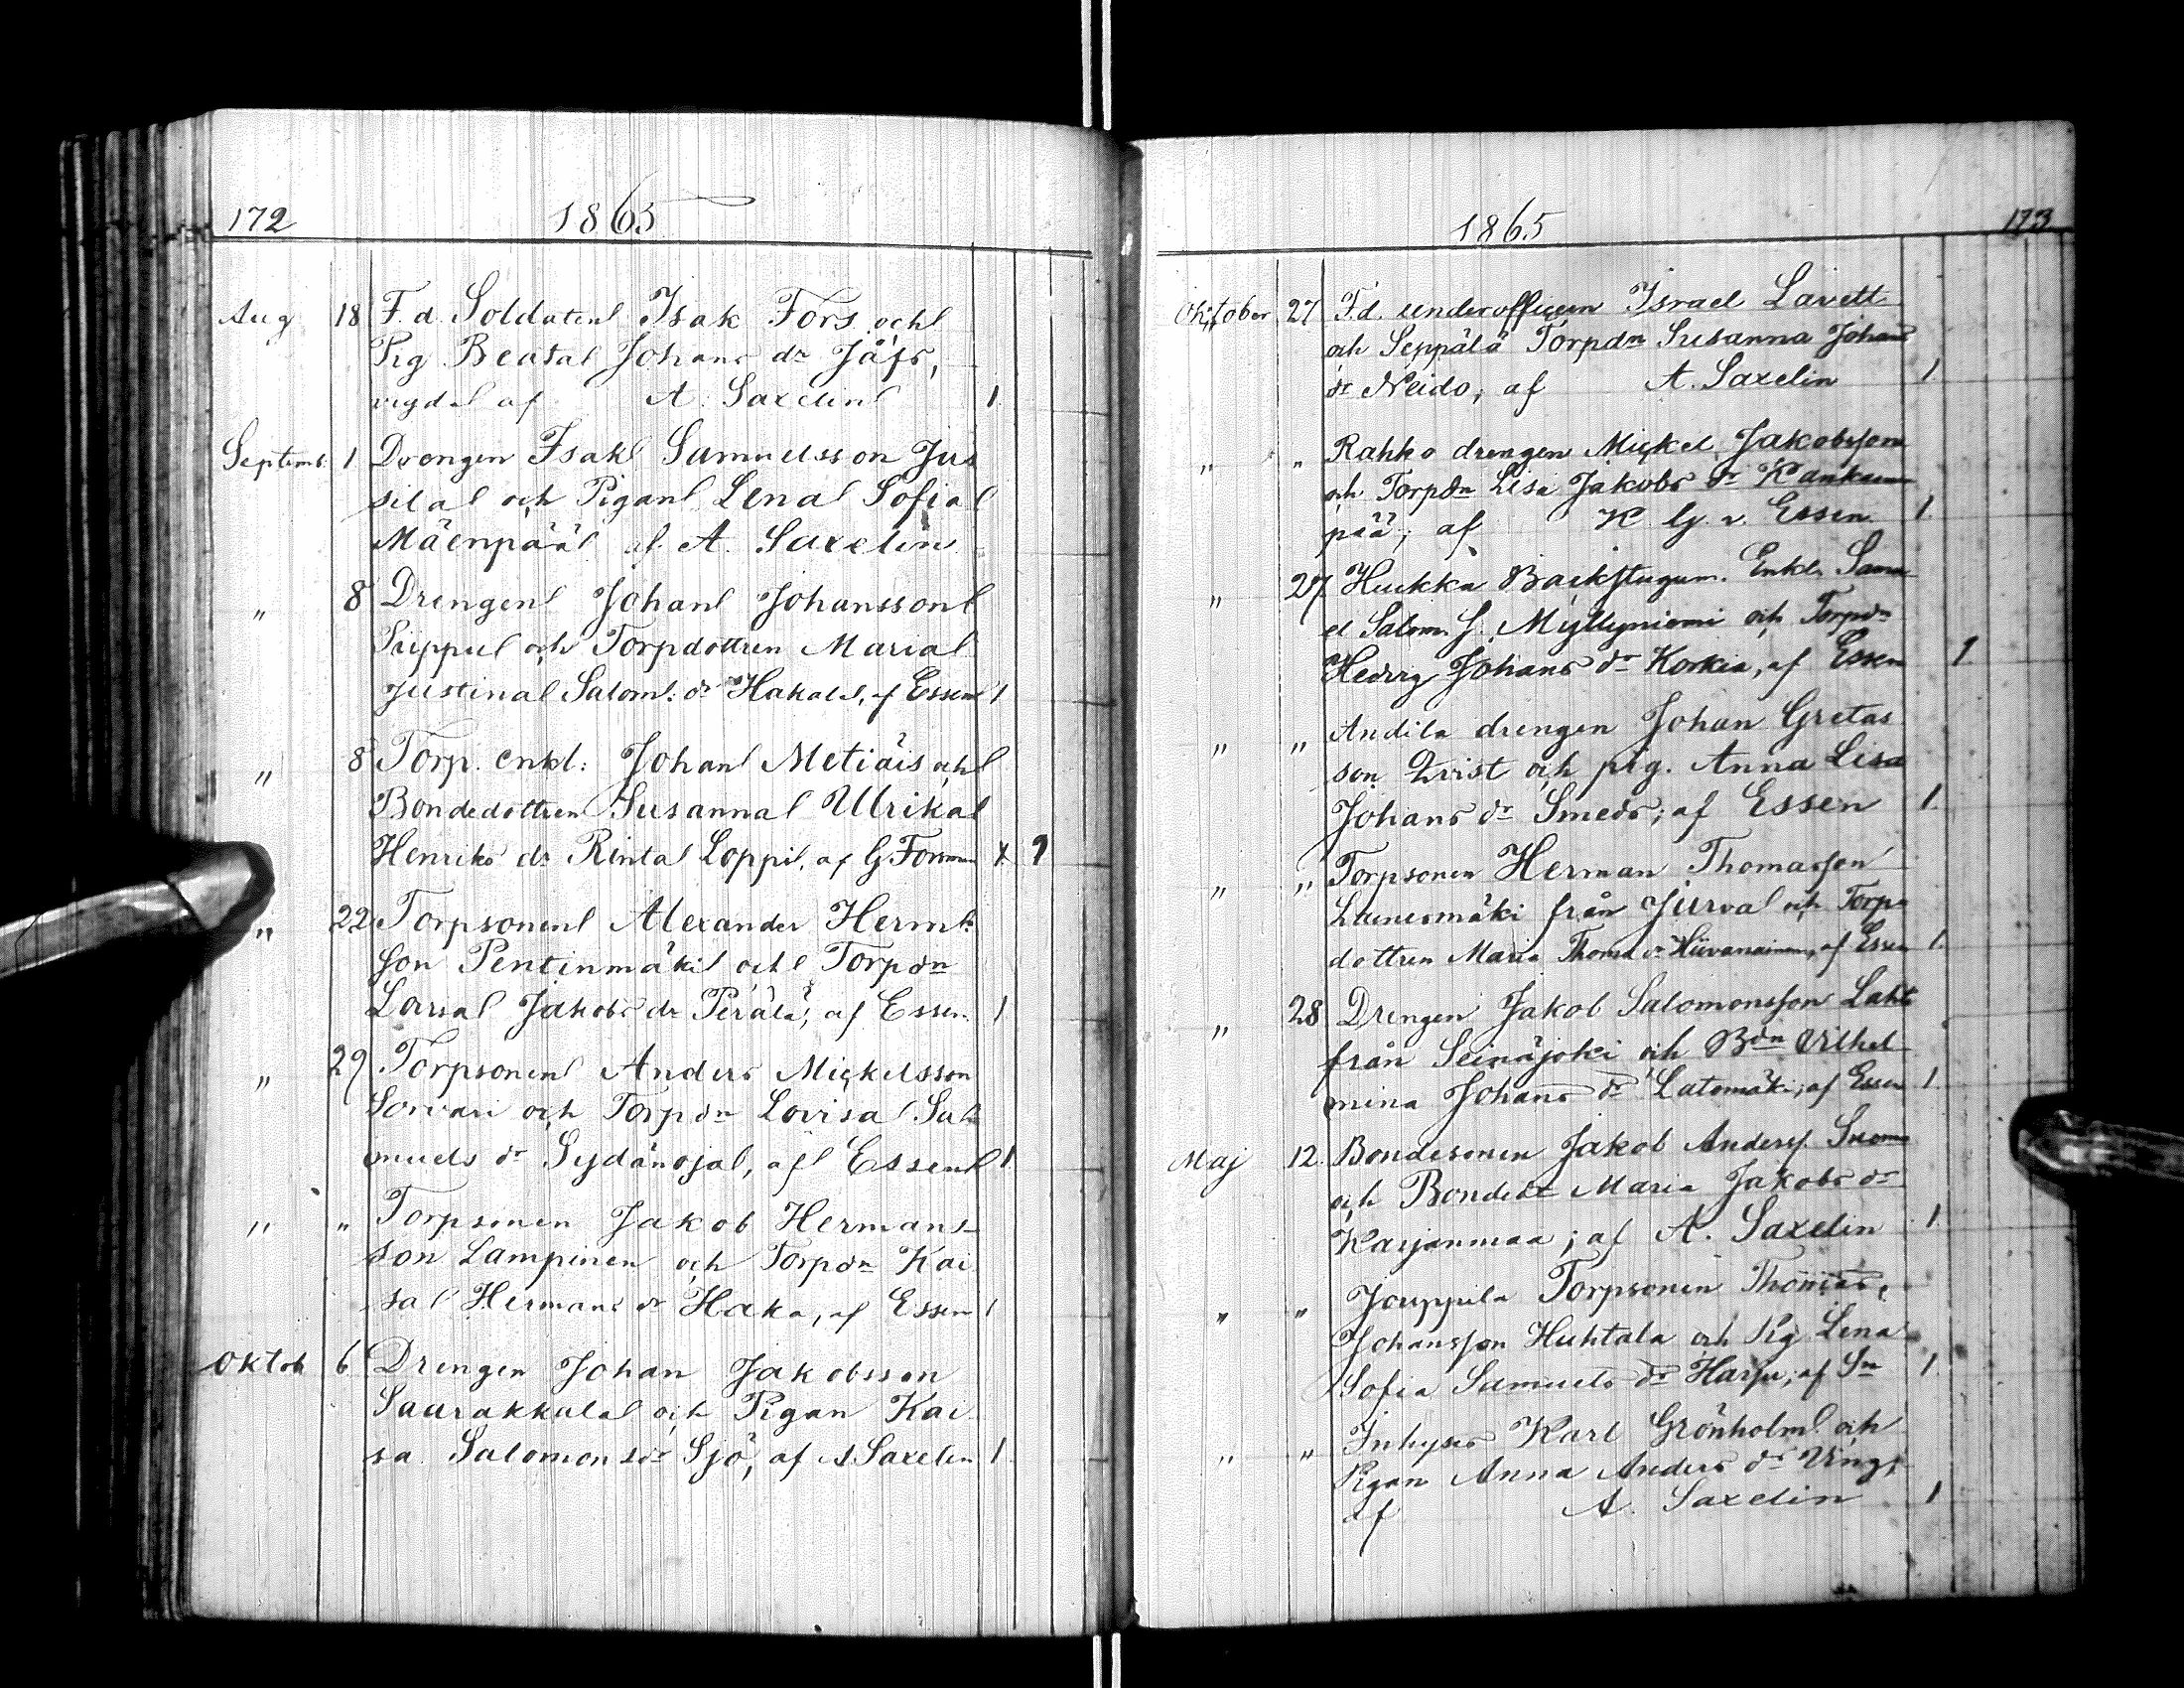 172 1865
Aug 18 F. d. Soldaten Isak Fors och
Pig Beata Johans dr Jåfs,
vigda af A. Saxelin 1
Septemb. 1 Drengen Isak Samuelsson Jus
sila och Pigan Lena Sofia
Mäenpää af A. Saxelin
" 8 Drengen Johan Johansson
Piippu och Torpdottren Maria
Justina Salom. dr Hakala, af Essen 1
" 8 Torp. enkl. Johan Metiäis och
Bondedottren Susanna Ulrika
Henriks dr Rinta Loppi, af G. Forsman X 1
" 22 Torpsonen Alexander Herm:
son Pentinmäki och Torpdn
Lovisa Jakobs dr Perälä, af Essen 1
" 29 Torpsonen Anders Mickelsson
Sorvari och Torpdn Lovisa Sa
muels dr Sydänoja, af Essen 1
" " Torpsonen Jakob Hermans-
son Lampinen och Torpdn Kai
sa Hermans dr Haka, af Essen 1
Oktob 6 Drengen Johan Jakobsson
Saurakkala och Pigan Kai
sa Salomons dr Sjö, af A Saxelin 1
1865 173
Oktober 27 F.d. underofficern Israel Lavett
och Seppälä Torpdn Susanna Johans
dr Neido, af A. Saxelin 1
" " Rahko drengen Mickel Jakobsson
och Torpdn Lisa Jakobs dr Kankaan
pää; af K G. v. Essen 1
" 27 Huckka Backstugum. Enkl. Samu
el Salom. S. Myllyniemi och Torpdn
Hedvig Johans dr Korkia, af Essen 1
" " Andila drengen Johan Gretas
son Qvist och pig. Anna Lisa
Johans dr Smeds; af Essen 1
" " Torpsonen Herman Thomasson
Launesmäki från Jurva och Torp-
dottren Maria Thomas dr Hiivanainen, af Essen 1
" 28 Drengen Jakob Salomonsson Laht
från Seinäjoki och Bdn Vilhel
mina Johans dr Latomäki, af Essen 1
Maj 12. Bondesonen Jakob Anderss. Suom
och Bondedr Maria Jakobs dr
Karjanmaa; af A. Saxelin 1
" " Jouppila Torpsonen Thomas
Johansson Huhtala och Pig Lena
Sofia Samuels dr Harju, af Sn 1
" " Inhyses Karl Grönholm och
Pigan Anna Anders dr Ving,
af A. Saxelin 1